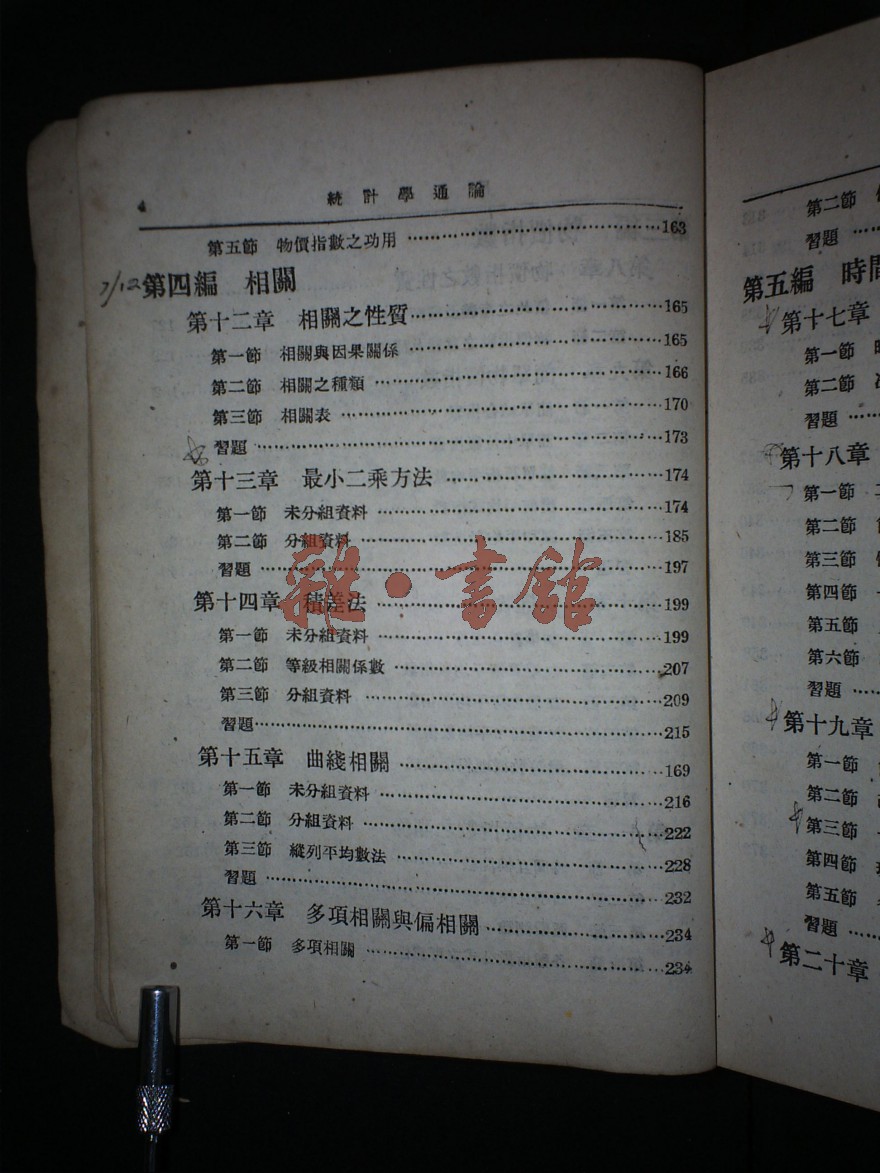 4 統計學通論
第五節 物價指數之功用 ……163
7/12 第四編 相關
第十二章 相關之性質……165
第一節 相關與因果關係 ……165
第二節 相關之種類 ……166
第三節 相關表 ……170
習題 ……173
第十三章 最小二乘方法 ……174
第一節 未分組資料 ……174
第二節 分組資料 ……185
習題 ……197
第十四章 積差法 ……199
第一節 未分組資料 ……199
第二節 等級相關係數 ……207
第三節 分組資料 ……209
習題……215
第十五章 曲綫相關 ……169
第一節 未分組資料 ……216
第二節 分組資料 ……222
第三節 縱列平均數法 ……228
習題 ……232
第十六章 多項相關與偏相關 ……234
第一節 多項相關 ……234
雜·書館
第二節
習題 ……
第五編 時間
第十七章
第一節
第二節
習題 ……
第十八章
第一節
第二節
第三節
第四節
第五節
第六節
習題 ……
第十九章
第一節
第二節
第三節
第四節
第五節
習題 ……
第二十章